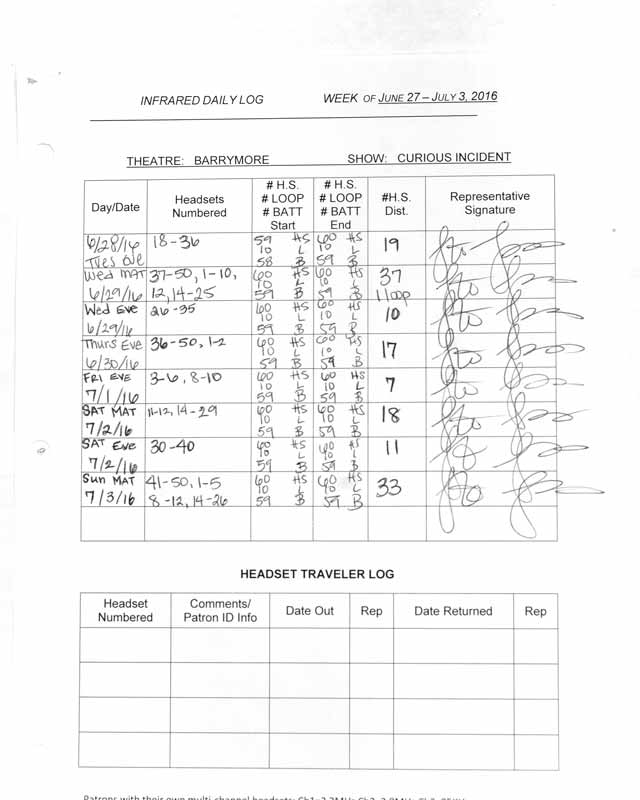 INFRARED DAILY LOG WEEK OF JUNE 27 – JULY 3, 2016
THEATRE: BARRYMORE SHOW: CURIOUS INCIDENT
Day/Date Headsets Numbered # H.S. # LOOP # BATT Start # H.S. # LOOP # BATT End #H.S. Dist. Representative Signature
6/28/16 Tues Eve 18-36 59 HS 10 L 58 B 60 HS 10 L 59 B 19
Wed MAT 6/29/16 37-50, 1-10, 12, 14-25 60 HS 10 L 59 B 60 HS 10 L 59 B 37 1 loop
Wed Eve 6/29/16 26-35 60 HS 10 L 59 B 60 HS 10 L 59 B 10
Thurs Eve 6/30/16 36-50, 1-2 60 HS 10 L 59 B 60 HS 10 L 59 B 17
FRI EVE 7/1/16 3-6, 8-10 60 HS 10 L 59 B 60 HS 10 L 59 B 7
SAT MAT 7/2/16 11-12, 14-29 60 HS 10 L 59 B 60 HS 10 L 59 B 18
SAT Eve 7/2/16 30-40 60 HS 10 L 59 B 60 HS 10 L 59 B 11
Sun MAT 7/3/16 41-50, 1-5 8-12, 14-26 60 HS 10 L 59 B 60 HS 10 L 59 B 33
HEADSET TRAVELER LOG
Headset Numbered Comments/ Patron ID Info Date Out Rep Date Returned Rep
Patrons with their own multi-channel headsets: